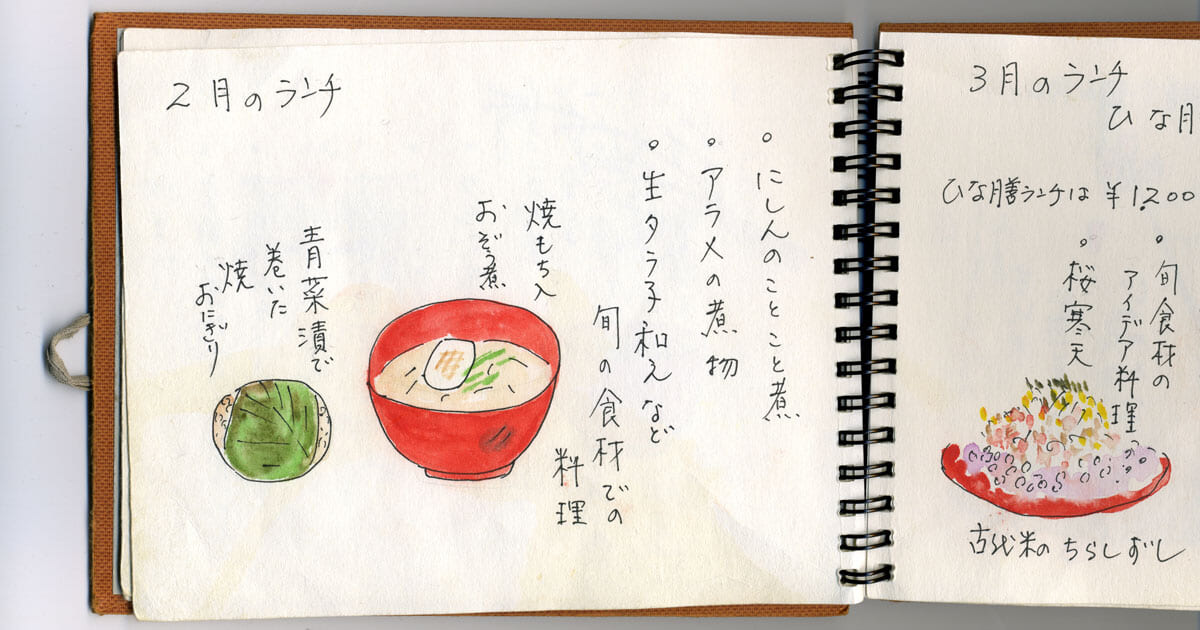 2月のランチ
。にしんのことこと煮
。アラメの煮物
。生タラ子和えなど
旬の食材での
料理
焼もち入
おぞう煮
青菜漬で
巻いた
焼
おにぎり
3月のランチ
ひな月
ひな膳ランチは ¥1.200
。旬食材の
アイデア料理
。桜寒天
古代米のちらしずし